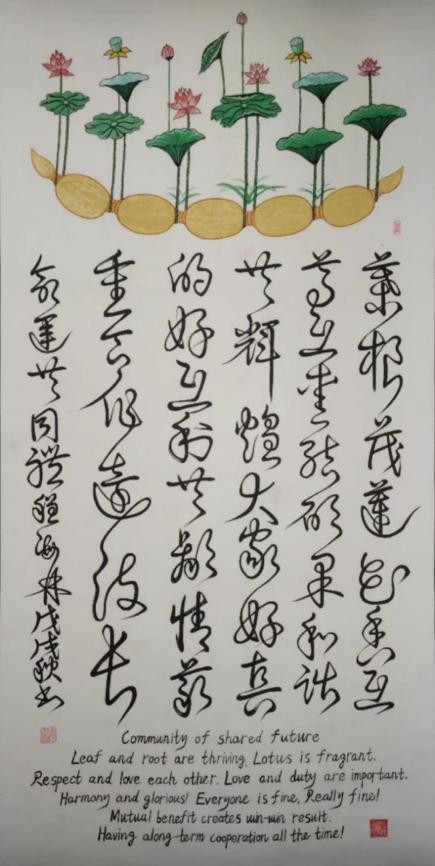 葉根茂蓮花香互
尊互愛結碩果和諧
共輝煌大家好真
的好互利共赢情義
重合作遠長
命運共同體 海林戊戌秋书
Community of shared future
Leaf and root are thriving. Lotus is fragrant.
Respect and love each other. Love and duty are important.
Harmony and glorious! Everyone is fine, Really fine!
Mutual benefit creates win-win result.
Having along-term cooperation all the time!